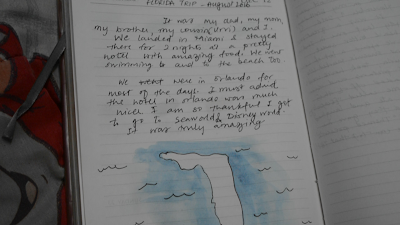 FLORIDA TRIP - AUGUST 2016
It was my dad, my mom,
my brother, my cousin and I.
We landed in Miami & stayed
there for 2 nights at a pretty
hotel with amazing food. We went
swimming & and to the beach too
We went were in Orlando for
most of the days. I must admit
the hotel in Orlando was much
nicer. I am so thankful I got
to go to Seaworld & Disney World
It was truly amazing.